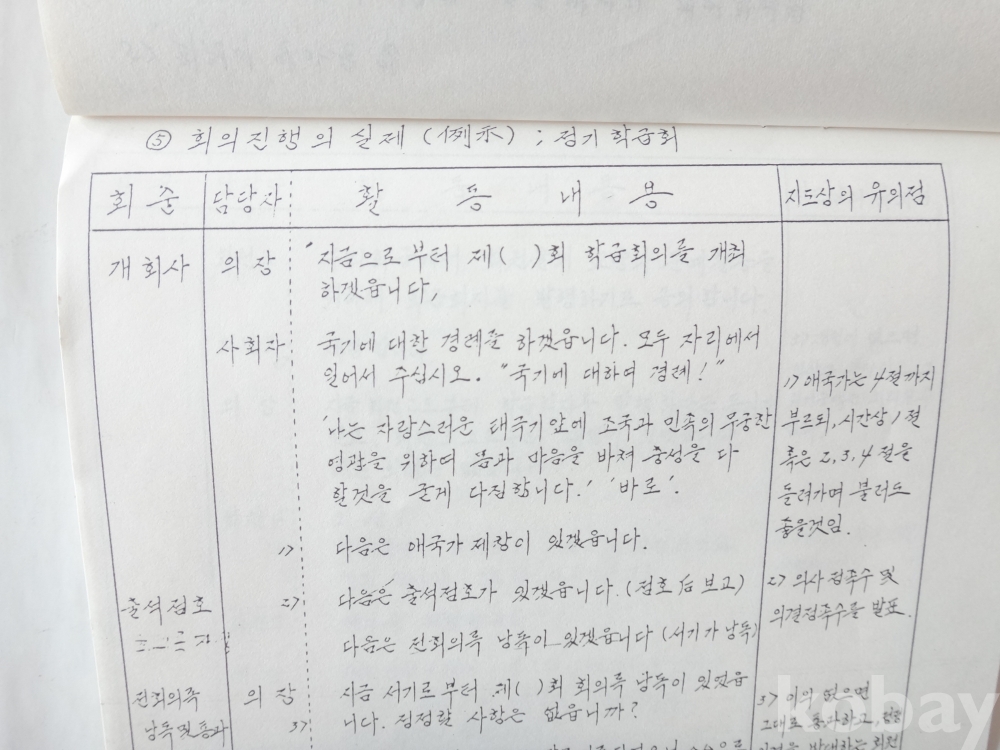 ⑤ 회의진행의 실제 (例示) ; 정기학급회
회 순 담당자 활 동 내 용 지도상의 유의점
개회사 의 장 "지금으로부터 제( )회 학급회의를 개최
하겠읍니다,
사회자 국기에 대한 경례를 하겠읍니다. 모두 자리에서
일어서 주십시오. "국기에 대하여 경례!"
'나는 자랑스러운 태극기앞에 조국과 민족의 무궁한
영광을 위하여 몸과 마음을 바쳐 충성을 다
할것을 굳게 다짐합니다.' '바로'.
1) 애국가는 4절까지
부르되, 시간상 1절
혹은 2, 3, 4 절을
돌려가며 불러도
좋을것임.
1) 다음은 애국가 제창이 있겠읍니다.
출석점호 2) 다음은 출석점호가 있겠읍니다. (점호 后 보고)
다음은 전회의록 낭독이 있겠읍니다 (서기가 낭독)
2) 의사정족수 및
의결정족수를 발표
전회의록 의 장 지금 서기로부터 제( )회 회의록 낭독이 있었읍
낭독및통과 3) 니다. 정정할 사항은 없읍니까?
3) 이의 없으면
그대로 통과하고,
kobay